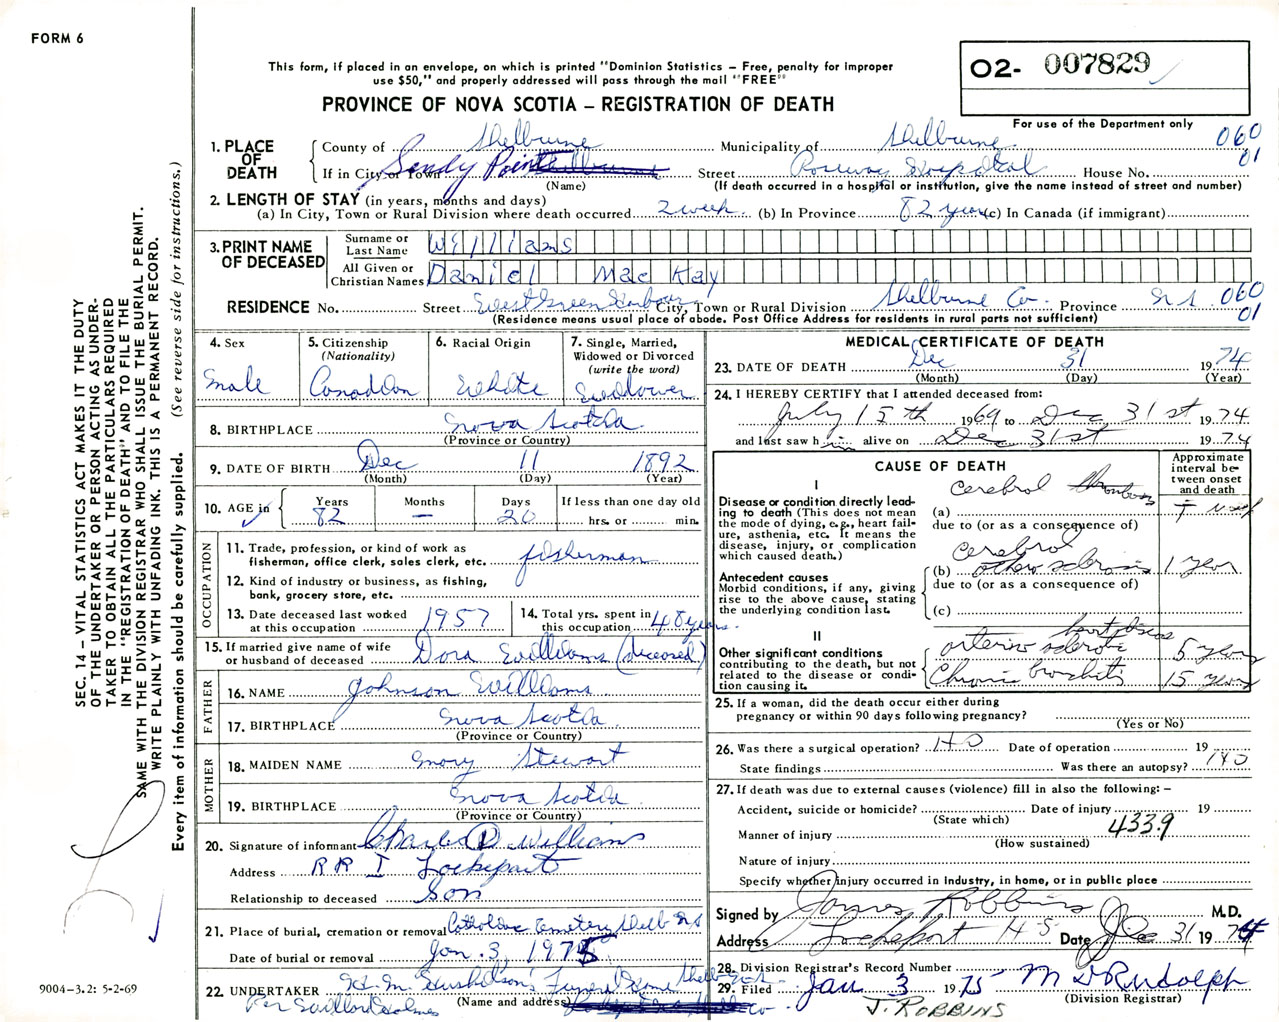 FORM 6
This form, if placed in an envelope, on which is printed "Dominion Statistics – Free, penalty for improper
use $50," and properly addressed will pass through the mail "FREE"
O2- 007829
PROVINCE OF NOVA SCOTIA – REGISTRATION OF DEATH
For use of the Department only
1. PLACE OF DEATH
County of Shelburne Municipality of Shelburne 060
If in City or Town Sandy Point Street Roseway Hospital House No. 01
(Name) (If death occurred in a hospital or institution, give the name instead of street and number)
2. LENGTH OF STAY (in years, months and days)
(a) In City, Town or Rural Division where death occurred 2 week (b) In Province 82 years (c) In Canada (if immigrant)
3. PRINT NAME OF DECEASED
Surname or Last Name Williams
All Given or Christian Names Daniel MacKay
RESIDENCE No. Street West Green Harbour City, Town or Rural Division Shelburne Co. Province N S 060
(Residence means usual place of abode. Post Office Address for residents in rural parts not sufficient) 01
4. Sex
Male
5. Citizenship (Nationality)
Canadian
6. Racial Origin
White
7. Single, Married, Widowed or Divorced (write the word)
Widower
8. BIRTHPLACE Nova Scotia
(Province or Country)
9. DATE OF BIRTH Dec 11 1892
(Month) (Day) (Year)
10. AGE in Years 82 Months – Days 20 If less than one day old hrs. or min.
OCCUPATION
11. Trade, profession, or kind of work as fisherman, office clerk, sales clerk, etc. fisherman
12. Kind of industry or business, as fishing, bank, grocery store, etc.
13. Date deceased last worked at this occupation 1957
14. Total yrs. spent in this occupation 48 years.
15. If married give name of wife or husband of deceased Dora Williams (deceased)
FATHER
16. NAME Johnson Williams
17. BIRTHPLACE Nova Scotia
(Province or Country)
MOTHER
18. MAIDEN NAME Mary Stewart
19. BIRTHPLACE Nova Scotia
(Province or Country)
20. Signature of informant Charles D. Williams
Address RR 1 Lockeport
Relationship to deceased Son
21. Place of burial, cremation or removal Cemetery Shelb NS
Date of burial or removal Jan. 3, 1975
22. UNDERTAKER H. M. Funeral Home Shelb. N.S.
(Name and address)
Per
MEDICAL CERTIFICATE OF DEATH
23. DATE OF DEATH Dec 31 1974
(Month) (Day) (Year)
24. I HEREBY CERTIFY that I attended deceased from:
July 15th 1969 to Dec 31st 1974
and last saw him alive on Dec 31st 1974
CAUSE OF DEATH
Approximate interval between onset and death
I
Disease or condition directly leading to death (This does not mean the mode of dying, e.g., heart failure, asthenia, etc. It means the disease, injury, or complication which caused death.)
(a) cerebral thrombosis
due to (or as a consequence of)
Antecedent causes
Morbid conditions, if any, giving rise to the above cause, stating the underlying condition last.
(b) cerebral 1 year
due to (or as a consequence of)
(c)
II
Other significant conditions
contributing to the death, but not related to the disease or condition causing it.
arterio sclerotic heart disease 5 years
Chronic bronchitis 15 years
25. If a woman, did the death occur either during pregnancy or within 90 days following pregnancy?
(Yes or No)
26. Was there a surgical operation? NO Date of operation 19
State findings Was there an autopsy? NO
27. If death was due to external causes (violence) fill in also the following: –
Accident, suicide or homicide? Date of injury 19
(State which) 433.9
Manner of injury
(How sustained)
Nature of injury
Specify whether injury occurred in industry, in home, or in public place
Signed by James Robbins M.D.
Address Lockeport N.S. Date Dec 31 1974
28. Division Registrar's Record Number
29. Filed Jan 3 1975 M D Rudolph
(Division Registrar)
J. ROBBINS
SEC. 14 – VITAL STATISTICS ACT MAKES IT THE DUTY
OF THE UNDERTAKER OR PERSON ACTING AS UNDER-
TAKER TO OBTAIN ALL THE PARTICULARS REQUIRED
IN THE "REGISTRATION OF DEATH" AND TO FILE THE
SAME WITH THE DIVISION REGISTRAR WHO SHALL ISSUE THE BURIAL PERMIT.
WRITE PLAINLY WITH UNFADING INK. THIS IS A PERMANENT RECORD.
Every item of information should be carefully supplied. (See reverse side for instructions.)
9004-3.2: 5-2-69